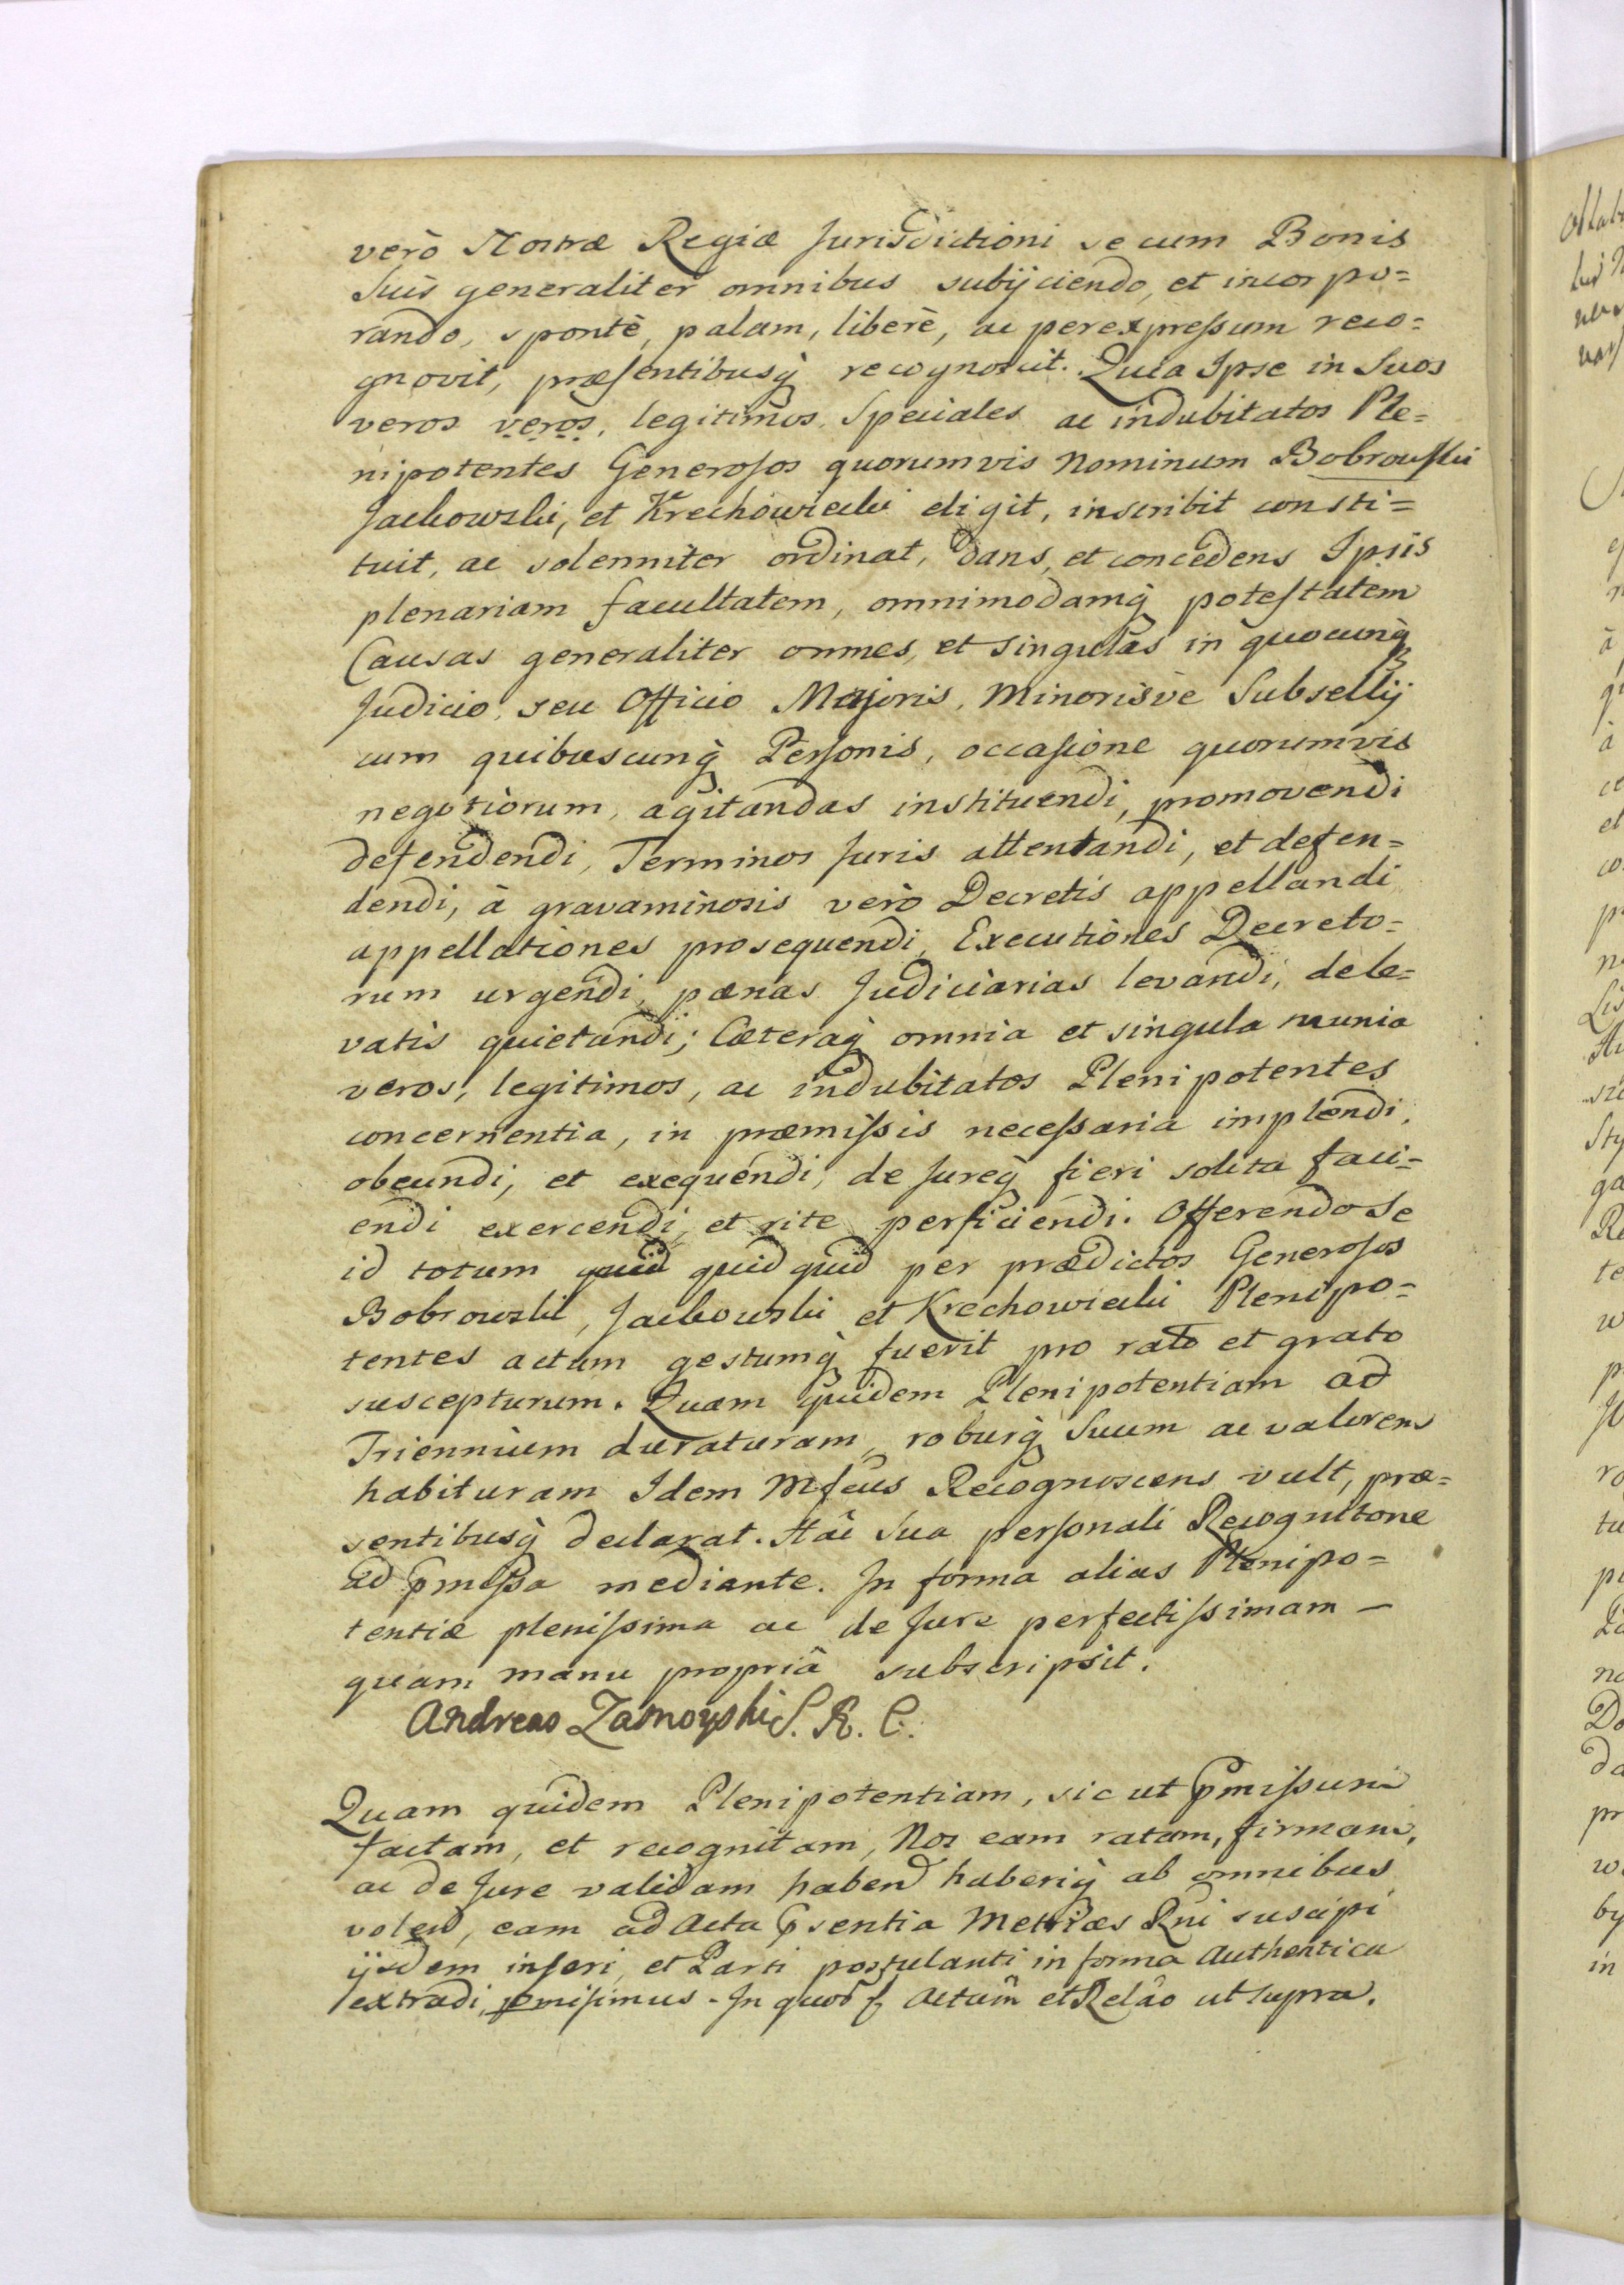 verò Nostræ Regiæ Jurisdictioni se cum Bonis
Suis generaliter omnibus subijciendo, et incorpo=
rando, spontè, palam, liberè, ac per expreſsum reco=
gnovit, præſentibusq́ recognoscit. Quia Ipse in Suos
veros veros, legitimos, Speciales ac indubitatos Ple=
nipotentes Generoſos quorumvis Nominum Bobrowſki
Jackowski, et Krechowiecki eligit, inscribit consti=
tuit, ac solenniter ordinat, dans, et concedens Ipsis
plenariam facultatem, omnimodamq́ poteſtatem
Causas generaliter omnes, et singulas in quocunq́
Judicio, seu Officio Majoris, Minorisvè Subsellij
cum quibuscunq́ Perſonis, occaſione quorumvis
negotiorum, agitandas instituendi, promovendi
defendendi, Terminos Juris attentandi, et defen=
dendi, à gravaminosis verò Decretis appellandi
appellationes prosequendi, Executiones Decreto=
rum urgendi, pœnas Judiciarias levandi, de le=
vatis quietandi; Cæteraq́ omnia et singula munia
veros, legitimos, ac indubitatos Plenipotentes
concernentia, in præmiſsis neceſsaria implendi,
obeundi, et exequendi, de Jureq́ fieri solita faci=
endi exercendi, et rite perficiendi. Offerendo Se
id totum quid quid quid per prædictos Generoſos
Bobrowski, Jackowski et Krechowiecki Plenipo=
tentes actum gestumq́ fuerit pro rato et grato
suscepturum. Quam quidem Plenipotentiam ad
Triennium duraturam, roburq́ Suum ac valorem
habituram Idem Mfcus Recognoscens vult, præ=
sentibusq́ declarat. Hâc Sua perſonali Recognitone
ad pmiſsa mediante. In forma alias Plenipo=
tentiæ pleniſsima ac de Jure perfectiſsimam —
quam manu propriâ subscripsit.
Andreas Zamoyski S. R. C.
Quam quidem Plenipotentiam, sic ut pmiſsum
factam, et recognitam, Nos eam ratam, firmam,
ac de Jure validam habend haberiq́ ab omnibus
volend, eam ad Acta psentia Metrices Rni suscipi
ijsdem inſeri, et Parti postulanti in forma Authentica
extradi, pmiſimus. In quor f Actum̂ et Relâo ut supra.